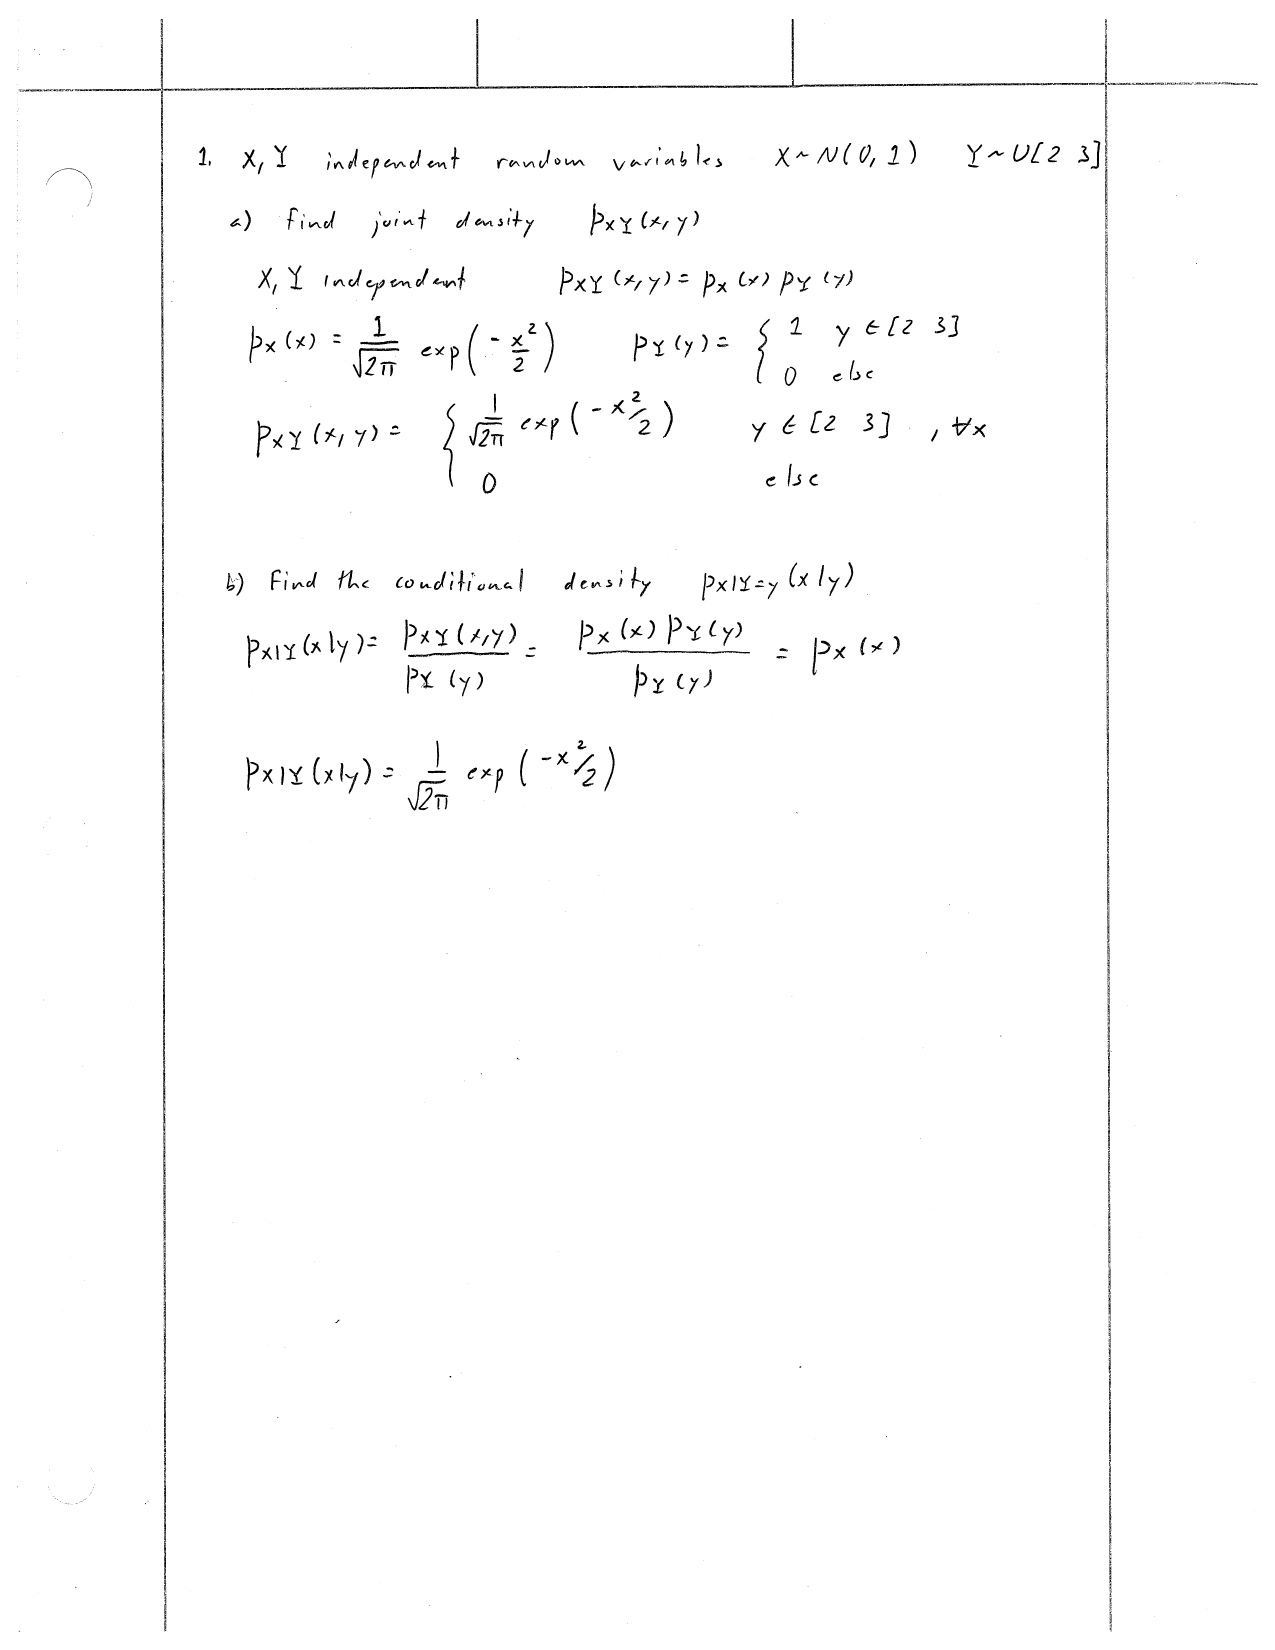 1. X, Y independent random variables X ~ N(0, 1) Y ~ U[2 3]
a) Find joint density p_XY(x, y)
X, Y independent p_XY(x, y) = p_X(x) p_Y(y)
p_X(x) = 1/√(2π) exp(-x²/2) p_Y(y) = { 1 y ∈ [2 3]
0 else
p_XY(x, y) = { 1/√(2π) exp(-x²/2) y ∈ [2 3], ∀x
0 else
b) Find the conditional density p_X|Y=y(x|y)
p_X|Y(x|y) = p_XY(x,y)/p_Y(y) = p_X(x) p_Y(y)/p_Y(y) = p_X(x)
p_X|Y(x|y) = 1/√(2π) exp(-x²/2)